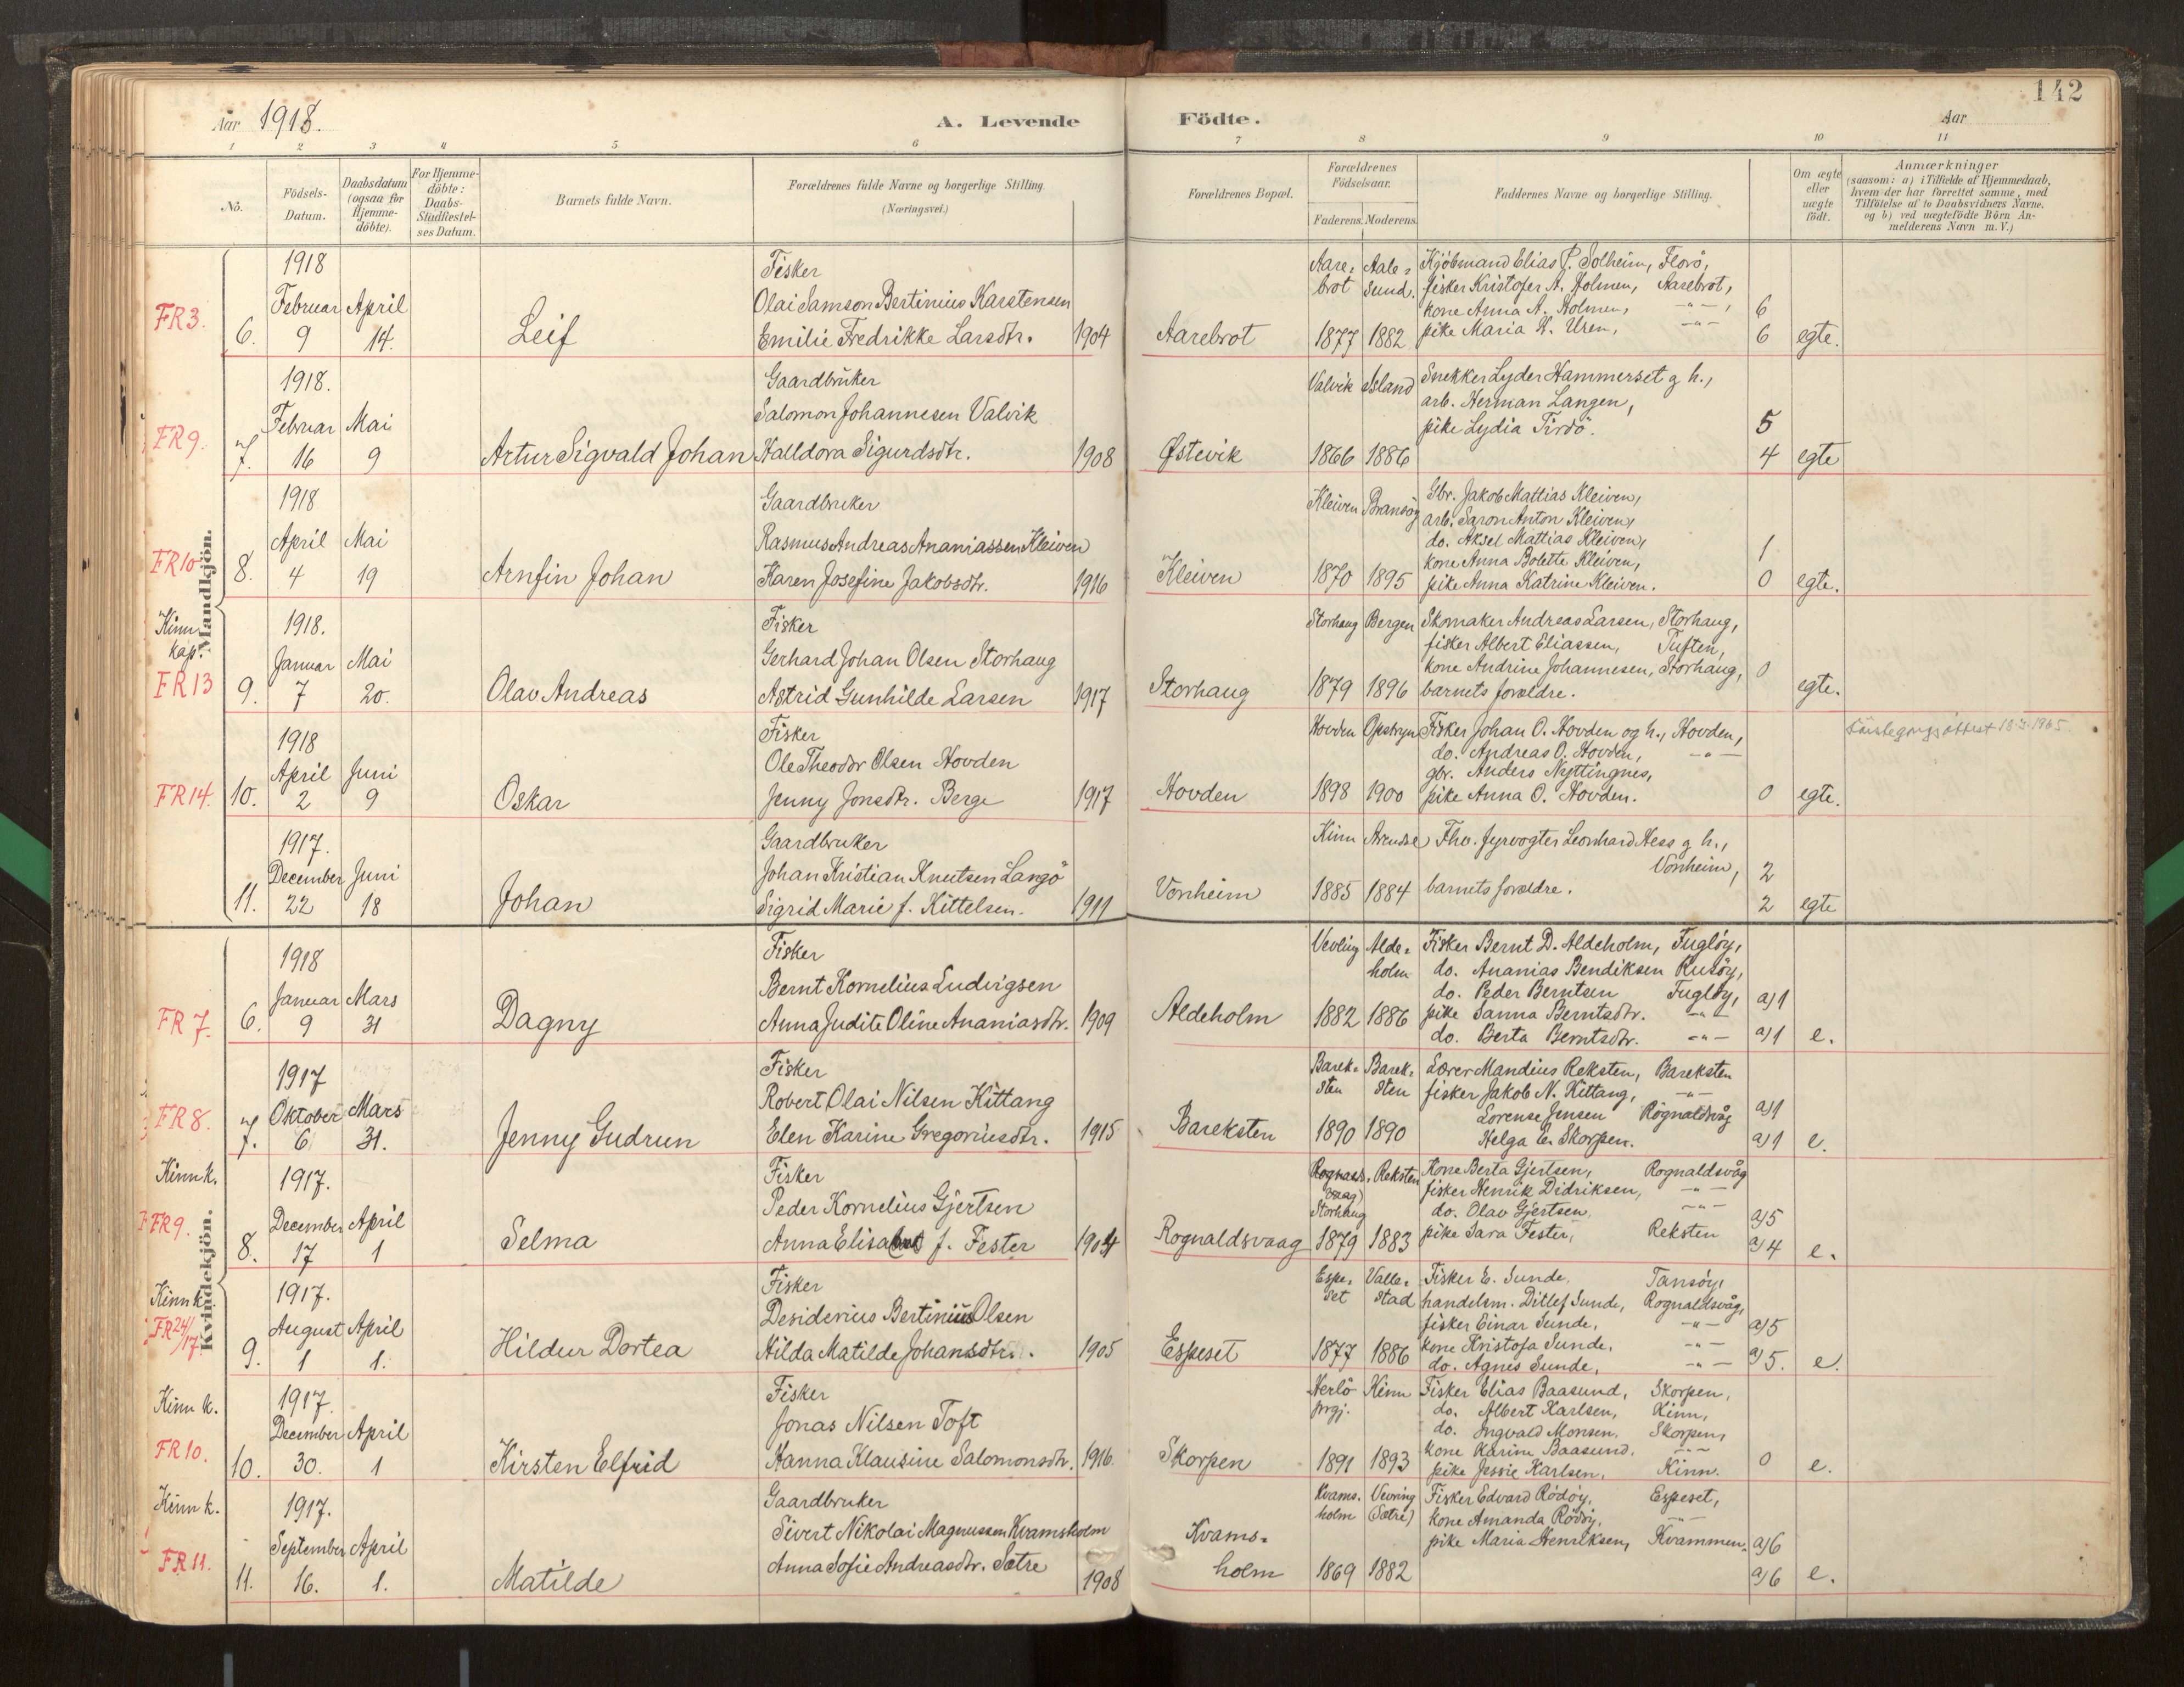 142
Aar 1918.
A. Levende
Födte.
Aar
1 2 3 4 5 6 7 8 9 10 11
No.
Födsels-
Datum.
Daabsdatum
(ogsaa for
Hjemme-
döbte).
For Hjemme-
döbte:
Daabs-
Stadfæstel-
ses Datum.
Barnets fulde Navn.
Forældrenes fulde Navne og borgerlige Stilling.
(Næringsvei.)
Forældrenes Bopæl.
Forældrenes
Födselsaar.
Faderens. Moderens.
Faddernes Navne og borgerlige Stilling.
Om ægte
eller
uægte
födt.
Anmærkninger
(saasom: a) i Tilfælde af Hjemmedaab,
hvem der har forrettet samme, med
Tilföielse af to Daabsvidners Navne.
og b) ved uægtefödte Börn An-
melderens Navn m. V.)
Mandkjön.
FR 3.
6.
1918
Februar April
9 14.
Leif
Fisker
Olai Samson Bertinius Karstensen
Emilie Fredrikke Larsdtr. 1904
Aarebrot
Aare- Aale-
brot sund.
1877 1882
Kjöbmand Elias P. Solheim, Florö,
fisker Kristofer A. Holmen, Aarebrot,
kone Anna A. Holmen, -"- , 6
pike Maria A. Uren, -"- 6 egte.
FR 9.
7.
1918.
Februar Mai
16 9
Artur Sigvald Johan
Gaardbruker
Salomon Johannesen Valvik
Halldora Sigurdsdtr. 1908
Østevik
Valvik Island
1866 1886
Snekker Lyder Hammerset g h.,
arb. Herman Langen,
pike Lydia Tirdö. 5
4 egte
FR 10
8.
1918
April Mai
4 19
Arnfin Johan
Gaardbruker
Rasmus Andreas Ananiassen Kleiven
Karen Josefine Jakobsdtr. 1916
Kleiven
Kleiven Bransöy
1870 1895
Gbr. Jakob Mattias Kleiven,
arb. Saron Anton Kleiven,
do. Aksel Mattias Kleiven,
kone Anna Bolette Kleiven, 1
pike Anna Katrine Kleiven. 0 egte.
Kinn
kap.
FR 13
9.
1918.
Januar Mai
7 20.
Olav Andreas
Fisker
Gerhard Johan Olsen Storhaug
Astrid Gunhilde Larsen 1917
Storhaug
Storhaug Bergen
1879 1896
Skomaker Andreas Larsen, Storhaug,
fisker Albert Eliassen, Tuften,
kone Andrine Johannesen, Storhaug, 0
barnets forældre. egte.
FR 14.
10.
1918
April Juni
2 9
Oskar
Fisker
Ole Theodor Olsen Hovden
Jenny Jonsdtr. Berge 1917
Hovden
Hovden Opstryn
1898 1900
Fisker Johan O. Hovden og h., Hovden,
do. Andreas O. Hovden, -"-
gbr. Anders Nyttingnes,
pike Anna O. Hovden. 0 egte.
11.
1917.
December Juni
22 18
Johan
Gaardbruker
Johan Kristian Knutsen Langö
Sigrid Marie f. Kittelsen. 1911
Vonheim
Kinn Arendal
1885 1884
Fhv. fyrvogter Leonhard Hess g h.,
Vonheim, 2
barnets forældre. 2 egte
Kvindekjön.
FR 7.
6.
1918
Januar Mars
9 31
Dagny
Fisker
Bernt Kornelius Ludvigsen
Anna Judite Oline Ananiasdtr. 1909
Aldeholm
Vevling Alde-
holm
1882 1886
Fisker Bernt D. Aldeholm, Fuglöy,
do. Ananias Bendiksen Rusöy,
do. Peder Berntsen Fuglöy, a) 1
pike Sanna Berntsdtr. -"-
do. Berta Berntsdtr. -"- a) 1 e.
FR 8.
7.
1917
Oktober Mars
6 31.
Jenny Gudrun
Fisker
Robert Olai Nilsen Kittang
Elen Karine Gregoriusdtr. 1915
Bareksten
Barek- Barek-
sten sten
1890 1890
Lærer Mandius Reksten, Bareksten
fisker Jakob N. Kittang, -"-
Lorense Jensen Rognaldsvåg a) 1
Helga E. Skorpen. a) 1 e.
Kinn k.
FR 9.
8.
1917.
December April
17 1
Selma
Fisker
Peder Kornelius Gjertsen
Anna Elisabet f. Fester 1904
Rognaldsvaag
Reksten
Storhaug
1879 1883
Kone Berta Gjertsen, Rognaldsvåg
fisker Henrik Didriksen, -"-
do. Olav Gjertsen, -"- a) 5
pike Sara Fester, Reksten a) 4 e.
Kinn k.
FR 24/17.
9.
1917.
August April
1 1.
Hildur Dortea
Fisker
Desiderius Bertinius Olsen
Hilda Matilde Johansdtr. 1905
Espeset
Espe- Valle-
set stad
1877 1886
Fisker E. Sunde, Tansöy,
handelsm. Ditlef Sunde, Rognaldsvåg,
fisker Einar Sunde, -"- a) 5
kone Kristofa Sunde, -"-
do. Agnes Sunde, -"- a) 5. e.
Kinn k.
FR 10.
10.
1917.
December April
30. 1
Kirsten Elfrid
Fisker
Jonas Nilsen Toft
Hanna Klausine Salomonsdtr. 1916.
Skorpen
Herlö Kinn
prgj.
1891 1893
Fisker Elias Baasund, Skorpen,
do. Albert Karlsen, Kinn,
do. Ingvald Monsen, Skorpen,
kone Karine Baasund. -"-
pike Jessie Karlsen, Kinn. 0 e.
Kinn k.
FR 11.
11.
1917.
September April
16. 1.
Matilde
Gaardbruker
Sivert Nikolai Magnussen Kvamsholm
Anna Sofie Andreasdtr. Sætre 1908
Kvams-
holm
Kvams- Vevring
holm (Sætre)
1869 1882
Fisker Edvard Rödöy, Espeset,
kone Amanda Rödöy, -"-
pike Maria Henriksen, Kvammen. a) 6
a) 6 e.